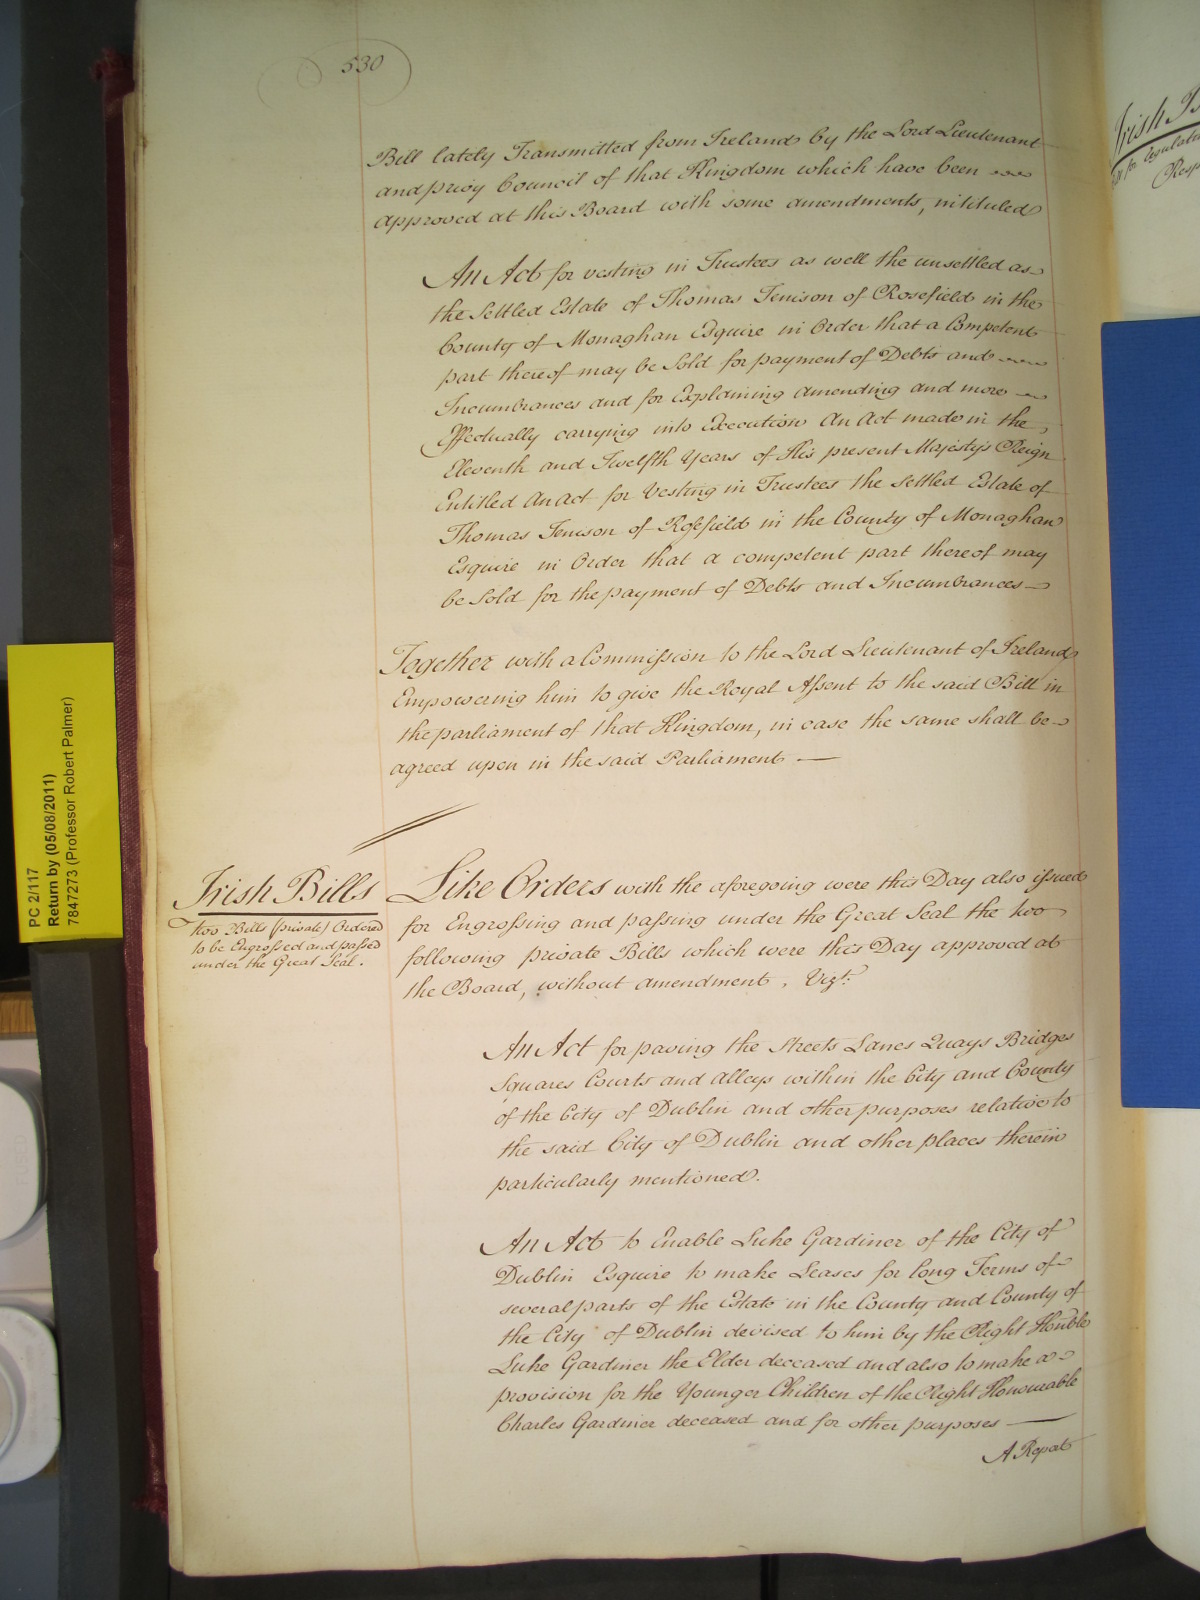 530
Bill lately Transmitted from Ireland by the Lord Lieutenant
and privy Council of that Kingdom which have been
approved at this Board with some amendments, intituled
An Act for vesting in Trustees as well the unsettled as
the Settled Estate of Thomas Tenison of Rosefield in the
County of Monaghan Esquire in Order that a Competent
part thereof may be Sold for payment of Debts and
Incumbrances and for Explaining amending and more
Effectually carrying into Execution An Act made in the
Eleventh and Twelfth Years of His present Majesty's Reign
Entitled An Act for Vesting in Trustees the Settled Estate of
Thomas Tenison of Rosefield in the County of Monaghan
Esquire in Order that a competent part thereof may
be Sold for the payment of Debts and Incumbrances
Together with a Commission to the Lord Lieutenant of Ireland
Empowering him to give the Royal Assent to the said Bill in
the parliament of that Kingdom, in case the same shall be
agreed upon in the said Parliament —
Irish Bills
Two Bills (private) Ordered
to be Engrossed and passed
under the Great Seal.
Like Orders with the aforegoing were this Day also issued
for Engrossing and passing under the Great Seal the two
following private Bills which were this Day approved at
the Board, without amendment, Vizt:
An Act for paving the Streets Lanes Quays Bridges
Squares Courts and Alleys within the City and County
of the City of Dublin and other purposes relative to
the said City of Dublin and other places therein
particularly mentioned.
An Act to Enable Luke Gardiner of the City of
Dublin Esquire to make Leases for long Terms of
several parts of the Estate in the County and County of
the City of Dublin devised to him by the Right Honble
Luke Gardiner the Elder deceased and also to make a
provision for the Younger Children of the Right Honourable
Charles Gardiner deceased and for other purposes —
A Report
PC 2/117
Return by (05/08/2011)
7847273 (Professor Robert Palmer)